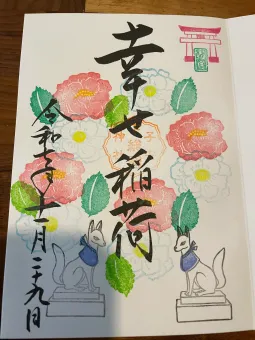 幸せ稲荷
令和年十一月二九日